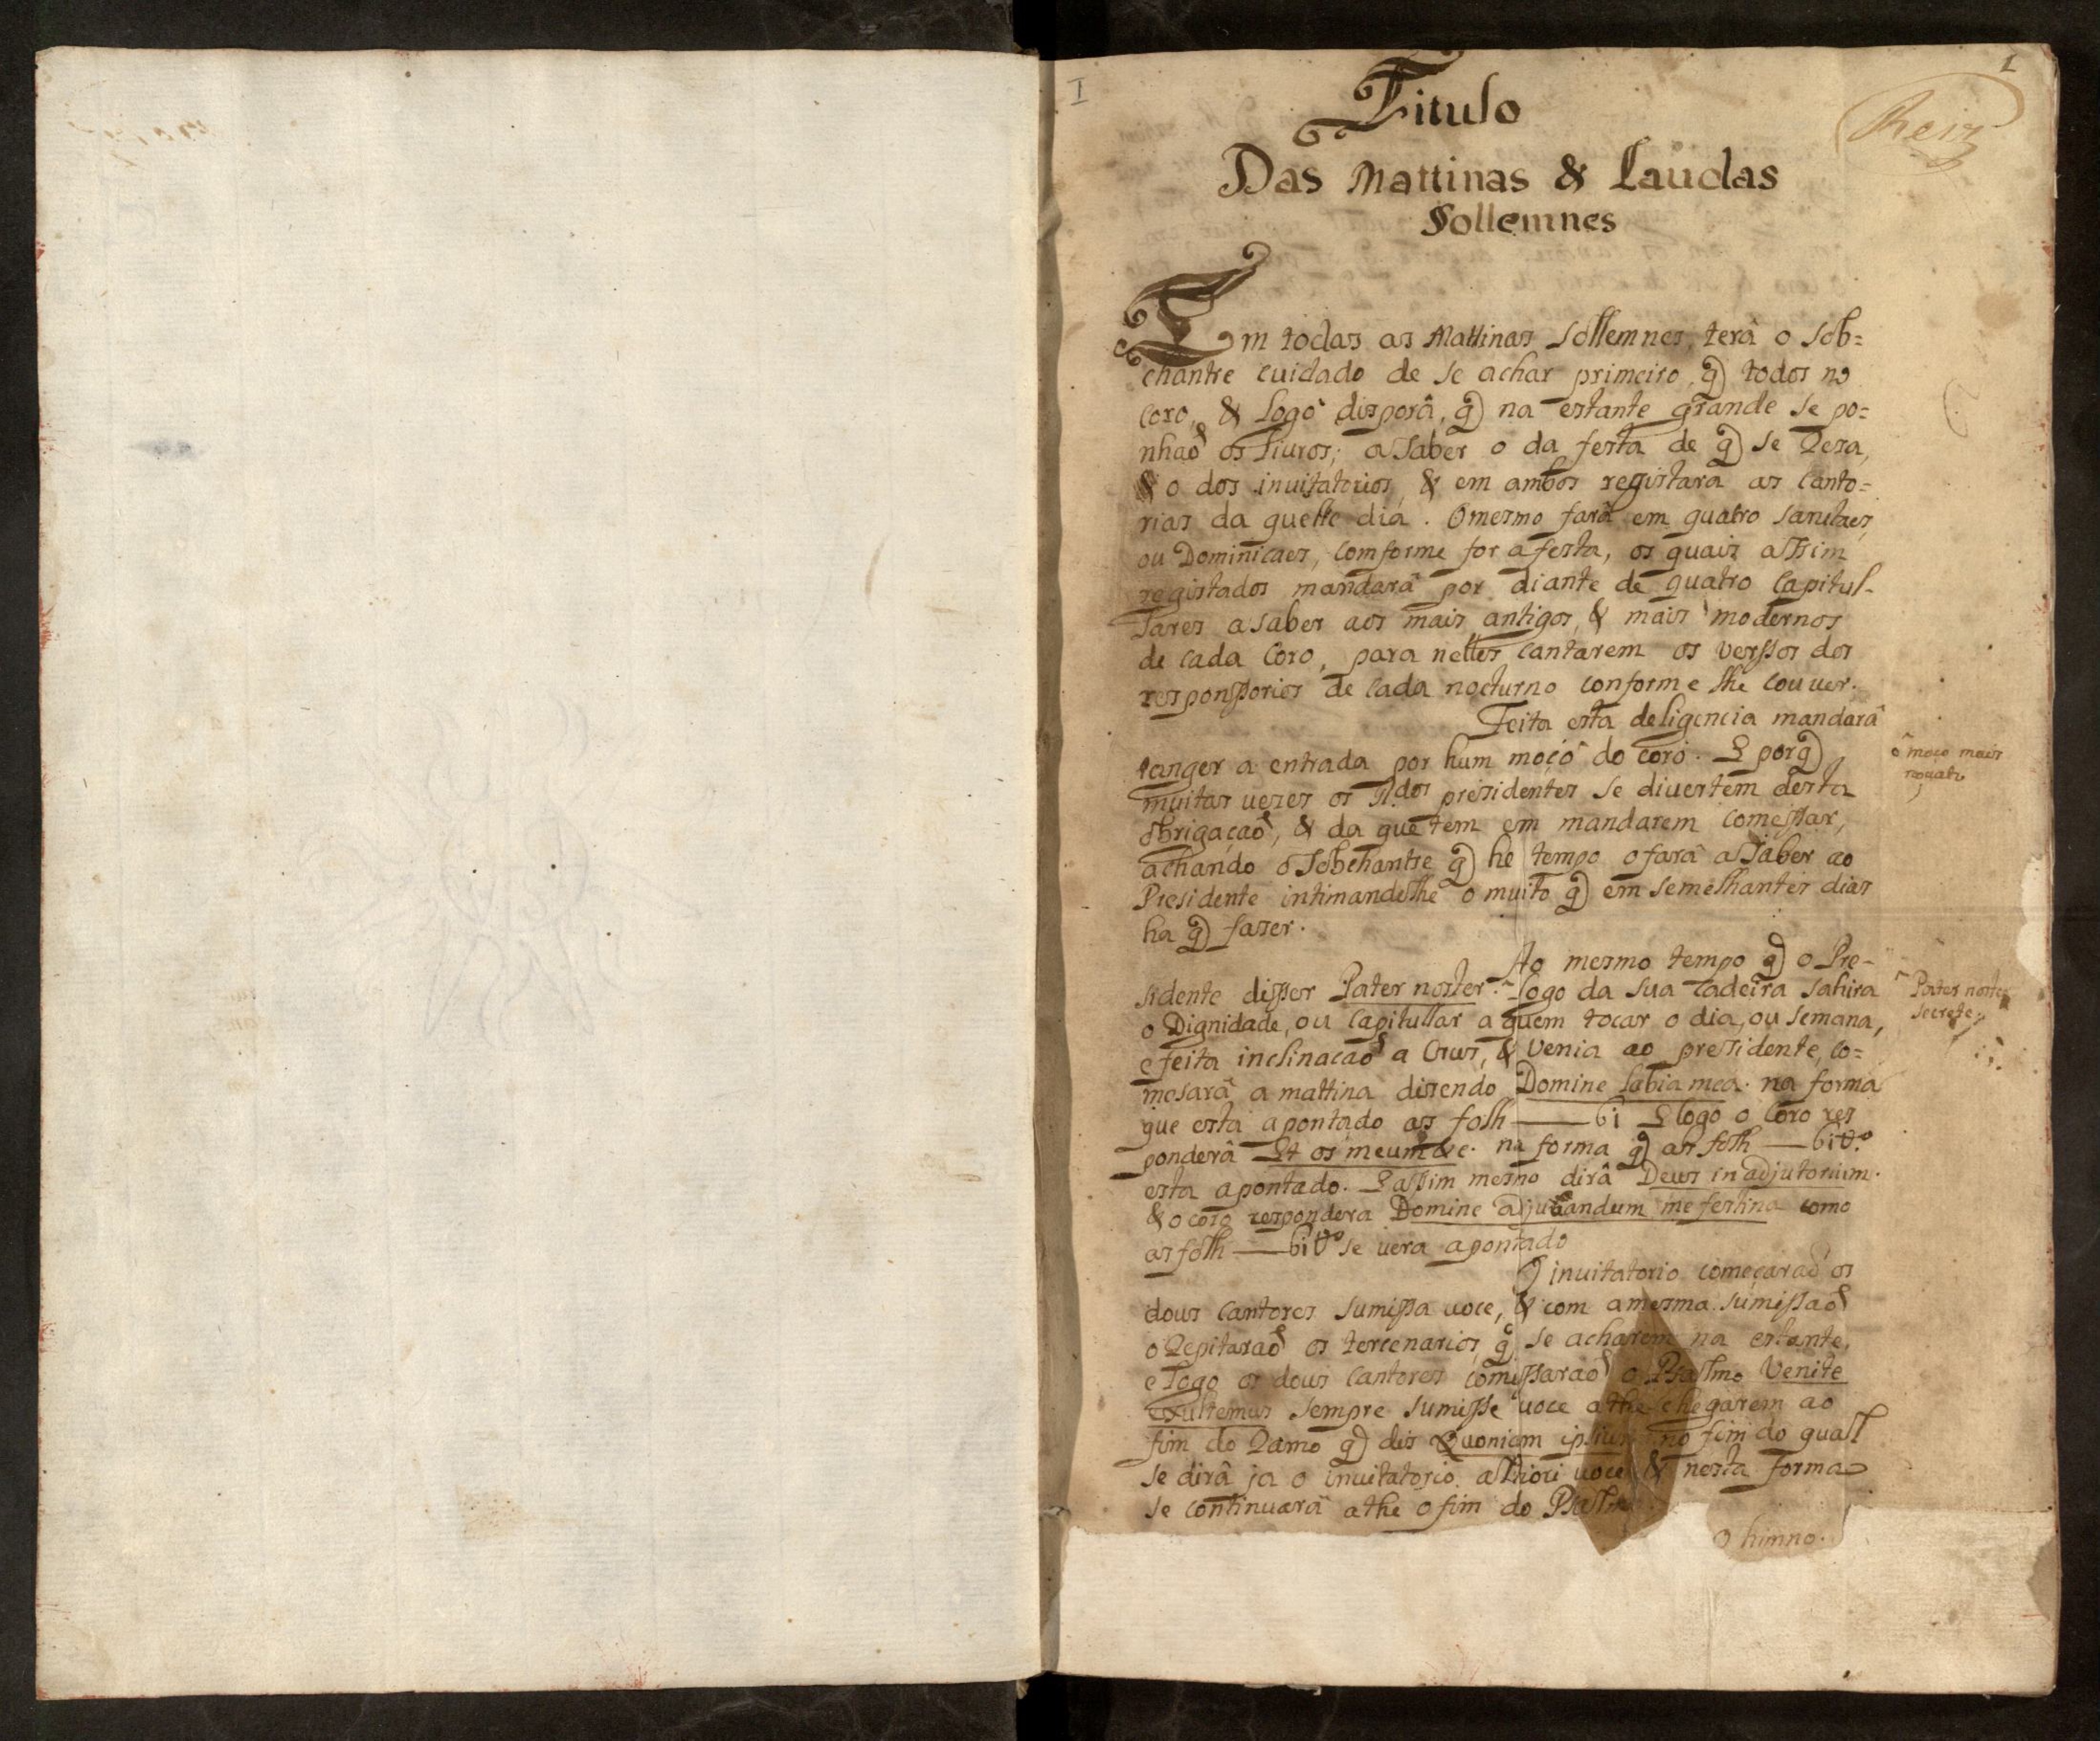 I
1
Reiz
Titulo
Das Mattinas & Laudas
Sollemnes
Em todas as Mattinas Sollemnes, terâ o sob=
chantre cuidado de se achar primeiro, q) todos no
coro, & logo disporâ, q) na estante grande se po=
nhaõ os livros; a saber o da festa de q) se Reza,
& o dos invitatorios, & em ambos registara as canto=
rias da quelle dia. O mesmo farâ em quatro santaes,
ou Dominicaes, comforme for a festa, os quais assim
registados mandarâ por diante de quatro Capitul-
lares a saber aos mais antigos, & mais modernos
de cada Coro, para nelles cantarem os verssos dos
responssorios de cada nocturno conforme lhe couver.
Feita esta deligencia mandarâ
tanger a entrada por hum moço do coro. E porq)
muitas vezes os R.dos presidentes se divertem desta
obrigaçaõ, & da que tem em mandarem comessar,
achando o Sobchantre q) he tempo o farâ a saber ao
Presidente intimandolhe o muito q) em semelhantes dias
ha q) faser.
ô moço mais
Ao mesmo tempo q) o Pre-
sidente disser Pater noster. logo da sua cadeira sahira
o Dignidade, ou Capitullar a quem tocar o dia, ou semana,
e feita inclinacaõ a Crus, & venia ao presidente, co=
mesarâ a mattina disendo Domine labia mea. na forma
que esta apontado as folh — 61 E logo o Coro res
ponderâ Et os meum &c. na forma q) as folh — 61 v.o
esta apontado. E assim mesmo dirâ Deus in adjutorium.
& o coro respondera Domine adjuvandum me festina como
as folh — 61 v.o se vera apontado
Pater noster
secrete
O invitatorio começaraõ os
dous cantores sumissa voce, & com a mesma sumissaõ
o Repitaraõ os tercenarios, q) se acharem na estante,
e logo os dous cantores comessaraõ o Psalmo Venite
exultemus sempre sumisse voce athe chegarem ao
fim do Ramo q) dis Quoniam ipsius no fim do quall
se dirâ ja o invitatorio. altiori voce & nesta forma
se continuarâ athe o fim do Psalmo.
O himno.